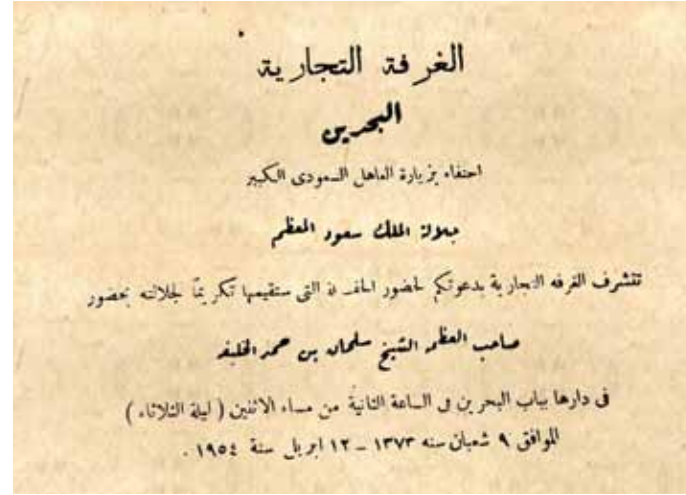 الغرفة التجارية
البحرين
احتفاء بزيارة العاهل السعودى الكبير
جلالة الملك سعود المعظم
تتشرف الغرفه التجارية بدعوتكم لحضور الحفلة التى ستقيمها تكريمًا لجلالته بحضور
صاحب العظمه الشيخ سلمان بن حمد الخليفه
فى دارها بباب البحرين فى الساعة الثانية من مساء الاثنين ( ليلة الثلاثاء )
الموافق ٩ شعبان سنه ١٣٧٣ - ١٢ ابريل سنة ١٩٥٤ .